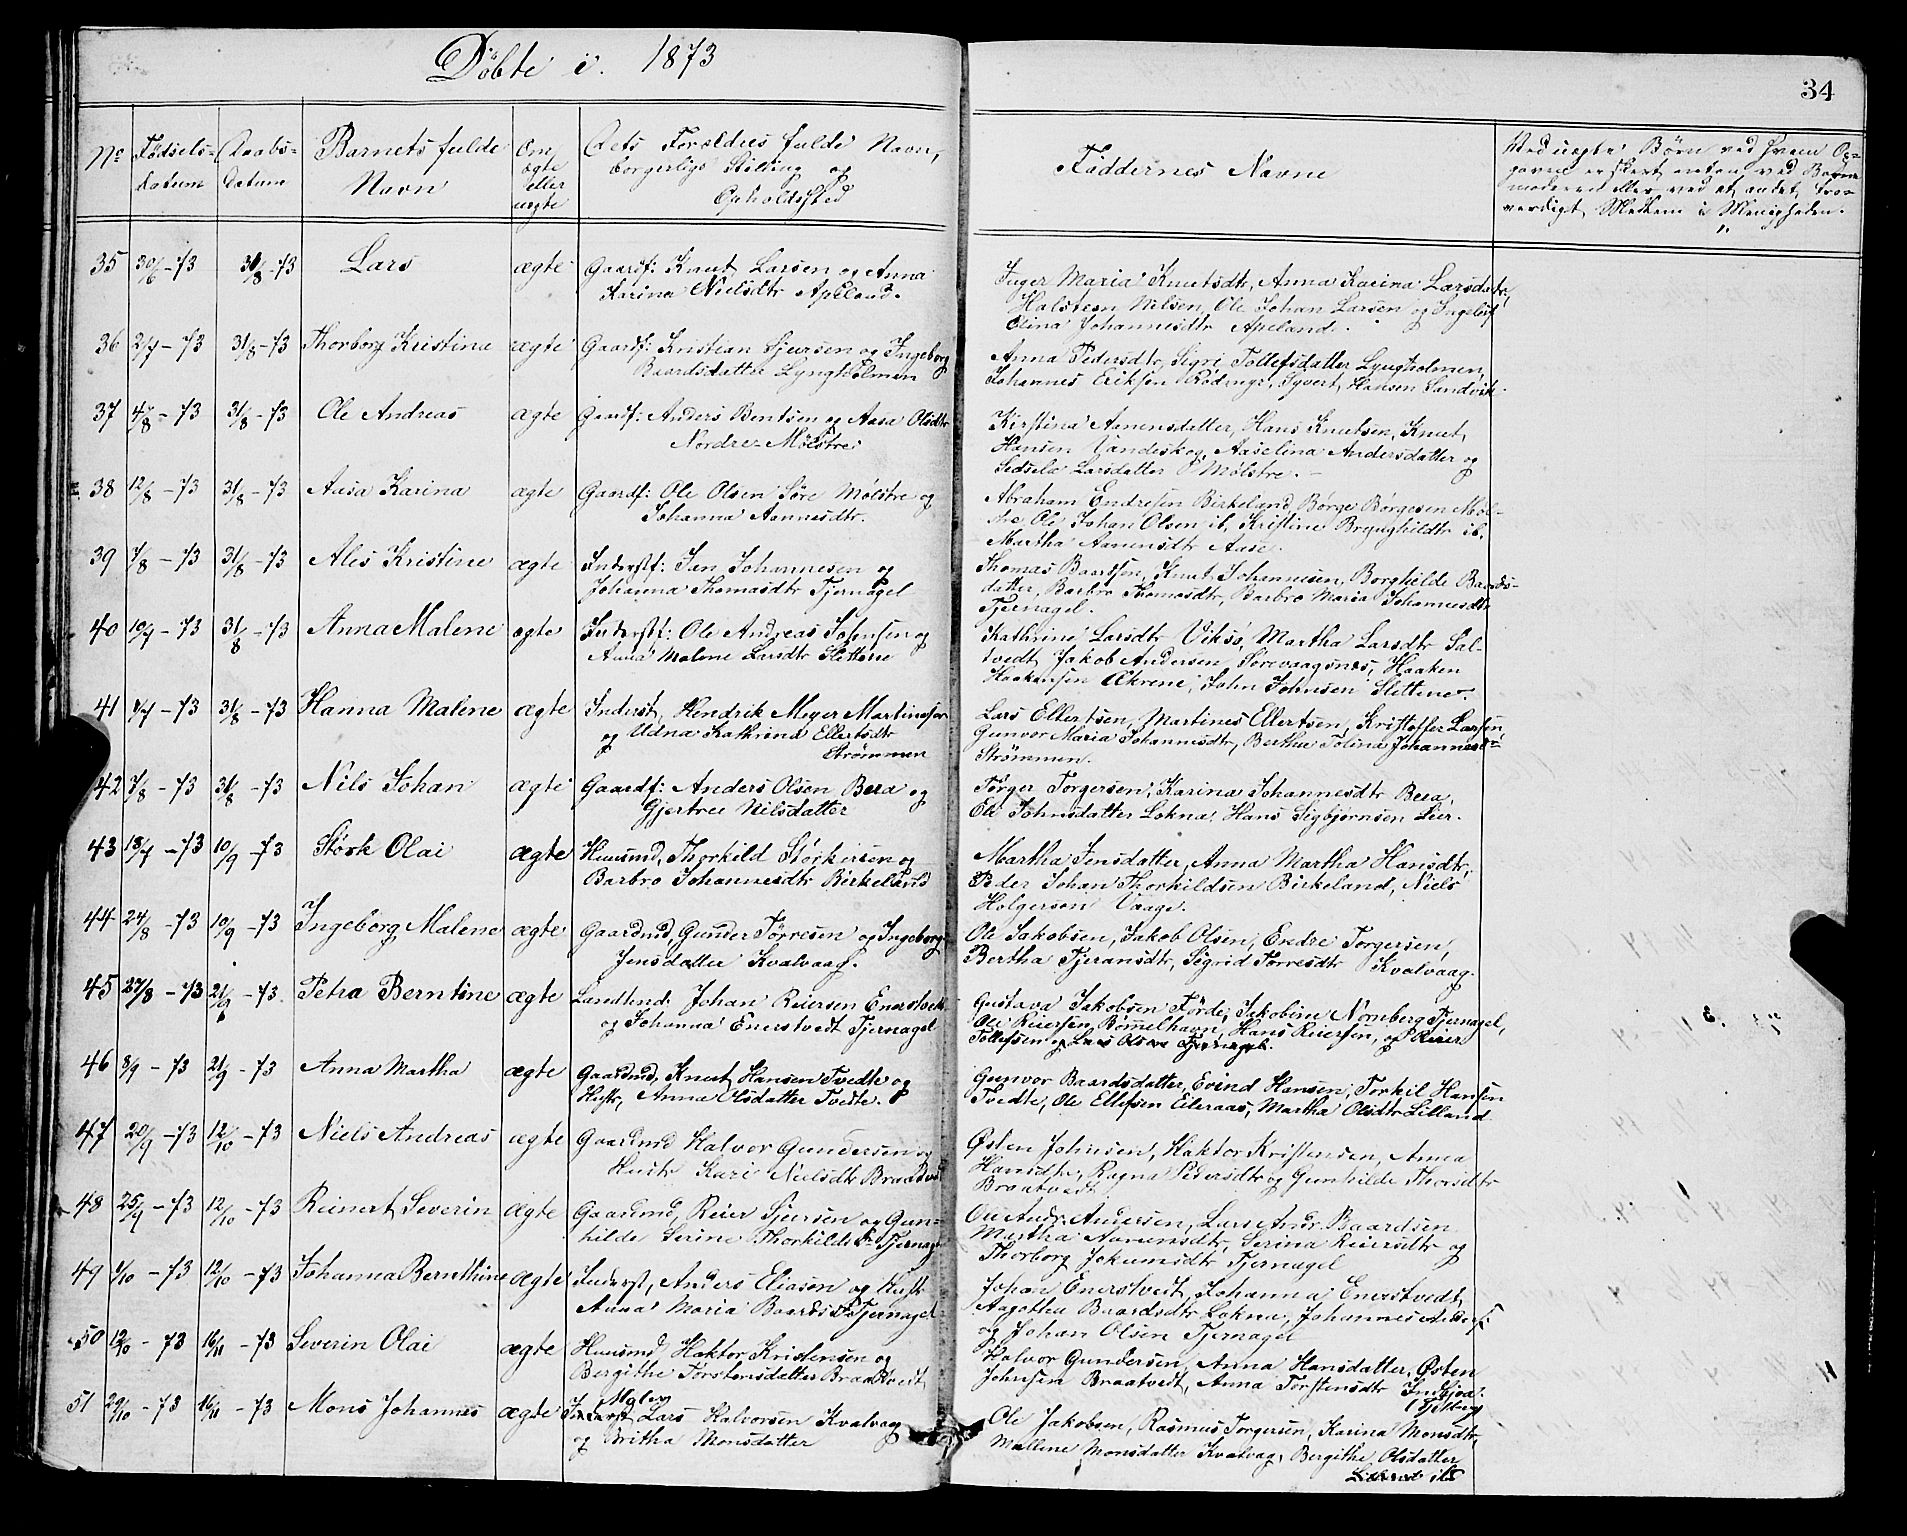 Döbte i. 1873
34
No Födsels-datum Daabs-datum Barnets fulde Navn Om ægte eller uægte Dets Forældres fulde Navn, borgerlige Stilling og Opholdssted
Faddernes Navne
Ved uægte Börn ved hvem Op-
moderen eller ved et andet tro-
værdigt Medlem i Menigheden.
35 30/6 -73 31/8 -73 Lars ægte Gaardf: Knut Larsen og Anna
Karina Nielsdtr Apeland.
Inger Maria Knutsdtr, Anna Karina Larsdatr,
Halsteen Nilsen, Ole Johan Larsen og Ingeleif
Elina Johannesdtr Apeland.
36 2/7 -73 31/8 -73 Thorborg Kristine ægte Gaardf: Kristian Sjursen og Ingeborg
Baardsdatter Lyngholmen
Anna Pedersdtr, Sigri Tollefsdatter Lyngholmen,
Johannes Eriksen Rödenge, Syvert Hansen Sandvik
37 4/8 -73 31/8 -73 Ole Andreas ægte Gaardf: Anders Bentsen og Aasa Olsdtr
Nordre-Mölstre
Kirstina Aanensdatter, Hans Knutsen, Knut
Hansen Vandeskog, Aaselina Andersdatter og
Sedsele Larsdatter Mölstre.
38 12/8 -73 31/8 -73 Aasa Karina ægte Gaardf: Ole Olsen Söre Mölstre og
Johanna Aanensdtr.
Abraham Endresen Birkeland, Börge Börgesen Möl-
stre Ole Johan Olsen ib, Kristine Brynghildtr ib.
Martha Aanensdtr Aase.
39 7/8 -73 31/8 -73 Ales Kristine ægte Inderstf: Jan Johannesen og
Johanna Thomasdtr Tjernagel
Thomas Baardsen, Knut Johannesen, Borghilde Baards-
datter, Barbro Thomasdtr, Barbro Maria Johannesdtr
Tjernagel.
40 10/7 -73 31/8 -73 Anna Malene ægte Inderstf: Ole Andreas Johnsen og
Anna Malene Larsdtr Slettene
Kathrine Larsdtr Viksö, Martha Larsdtr Sal-
tvedt Jakob Andersen Sörevaagsnes, Haaken
Haakensen Økrene, John Johnsen Slettene.
41 1/7 -73 31/8 -73 Hanna Malene ægte Inderst, Hendrik Meyer Martinesen
og Udna Kathrina Ellertsdtr
Strömmen
Lars Ellertsen, Martines Ellertsen, Kristoffer Larsen,
Gunvor Maria Johannesdtr, Berthe Tolina Johannesd-
Strömmen.
42 7/8 -73 31/8 -73 Nils Johan ægte Gaardf: Anders Olsen Bera og
Gjertree Nilsdatter
Törger Torgersen, Karina Johannesdtr Bera,
Eli Johnsdatter Lokna, Hans Sigbjörnsen Lier.
43 18/7 -73 10/9 -73 Störk Olai ægte Huusmd, Thorkild Störkersen og
Barbro Johannesdtr Birkeland
Martha Jensdatter, Anna Martha Hansdtr,
Peder Johan Thorkildsen Birkeland, Niels
Holgersen Vaage.
44 24/8 -73 10/9 -73 Ingeborg Malene ægte Gaardmd, Gunder Törresen og Ingeborg
Jensdatter Kvalvaag.
Ole Jakobsen, Jakob Olsen, Endre Torgersen,
Bertha Tjeransdtr, Sigrid Torresdtr Kvalvaag
45 27/8 -73 21/9 -73 Petra Berntine ægte Landhnd: Johan Reiersen Enerstvedt
og Johanna Enerstvedt Tjernagel
Gustava Jakobsen Förde, Jakobine Nornberg Tjernagel,
Ole Reiersen, Bömmelhavn, Hans Reiersen, og Reier
Tollefsen og Lars Olsen Tjernagel.
46 8/9 -73 21/9 -73 Anna Martha ægte Gaardmd, Knut Hansen Tvedte og
Hustr, Anna Olsdatter Tvedte.
Gunvor Baardsdatter, Evind Hansen, Torkil Hansen
Tvedte, Ole Ellefsen Eileraas, Martha Olsdtr Lilland
47 20/9 -73 12/10 -73 Niels Andreas ægte Gaardmd Halvor Gundersen og
Hustr Kari Nielsdtr Braatvedt
Østen Johnsen, Haktor Kristensen, Anna
Hansdtr, Ragna Pedersdtr og Gunhilde Thorsdtr
Braatvedt
48 25/9 -73 12/10 -73 Reinert Severin ægte Gaardmd, Reier Sjursen og Gun-
hilde Serine Thorkildsdtr Tjernag
Ole Andr. Andersen, Lars Andr. Baardsen
Martha Aanensdtr, Serina Reiersdtr og
Thorborg Jokumsdtr Tjernagel
49 1/10 -73 12/10 -73 Johanna Bernthine ægte Inderst, Anders Eliasen og Hustr
Anna Maria Baardsdtr Tjernagel
Johan Enerstvedt, Johanna Enerstvedt,
Aagothe Baardsdtr Lokna, Johannes
og Johan Olsen Tjernagel
50 12/10 -73 16/11 -73 Severin Olai ægte Huusmd Haktor Kristensen og
Bergithe Torstensdatter Braatvedt
Halvor Gundersen, Anna Hansdatter, Østen
Johnsen Braatvedt, Anna Torstensdtr Indbjoa
51 29/10 -73 16/11 -73 Mons Johannes ægte Inderst Lars Halvorsen Kvalvag
og Britha Monsdatter
Ole Jakobsen, Rasmus Torgersen, Karina Monsdtr,
Mallene Monsdatter Kvalvag, Bergithe Olsdatter